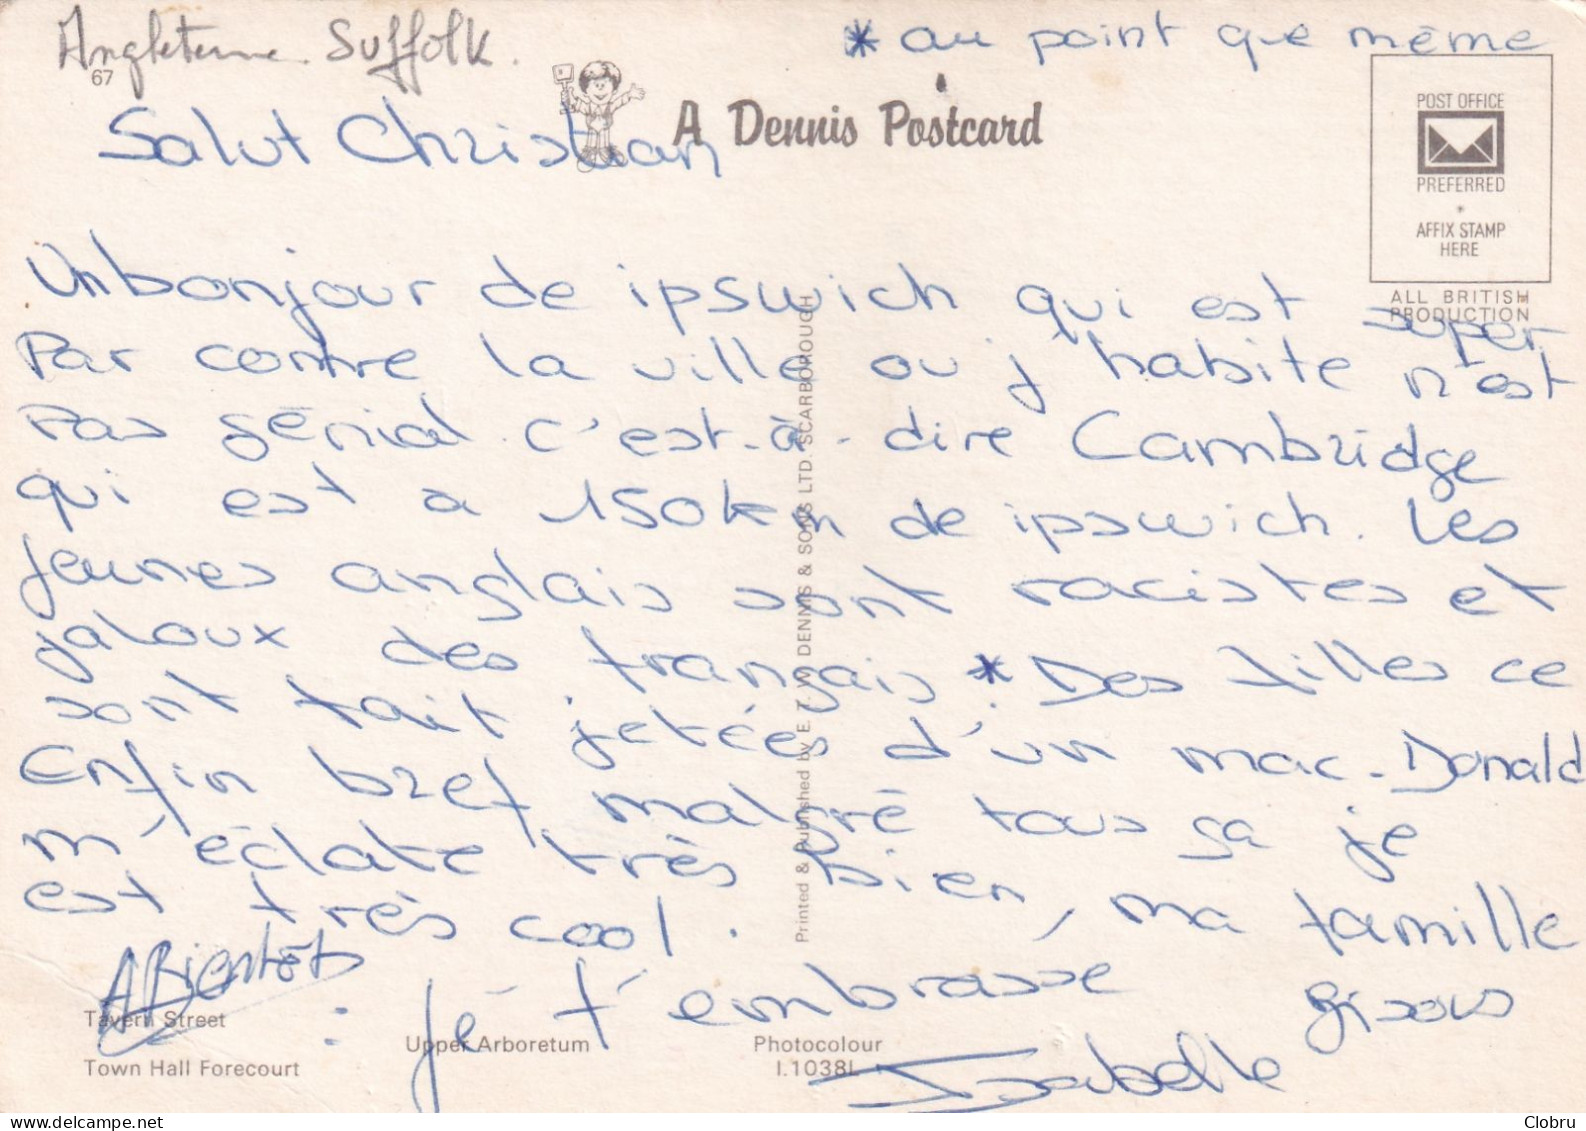 Angleterre. Suffolk.
67
* au point que même
A Dennis Postcard
POST OFFICE
PREFERRED
AFFIX STAMP
HERE
ALL BRITISH
PRODUCTION
Salut Christian
Un bonjour de ipswich qui est super
Par contre la ville ou j'habite n'est
Pas génial c'est-à-dire Cambridge
qui est a 150km de ipswich. Les
jeunes anglais sont racistes et
jaloux des français * Des filles ce
sont fait jetées d'un mac-Donald
Enfin bref malgré tous ça je
m'éclate très bien, ma famille
est très cool.
A Bientôt
: Je t'embrasse
gisous
Isabelle
Tavern Street
Town Hall Forecourt
Upper Arboretum
Photocolour
I.1038L
Printed & Published by E. T. W. DENNIS & SONS LTD. SCARBOROUGH
Clobru